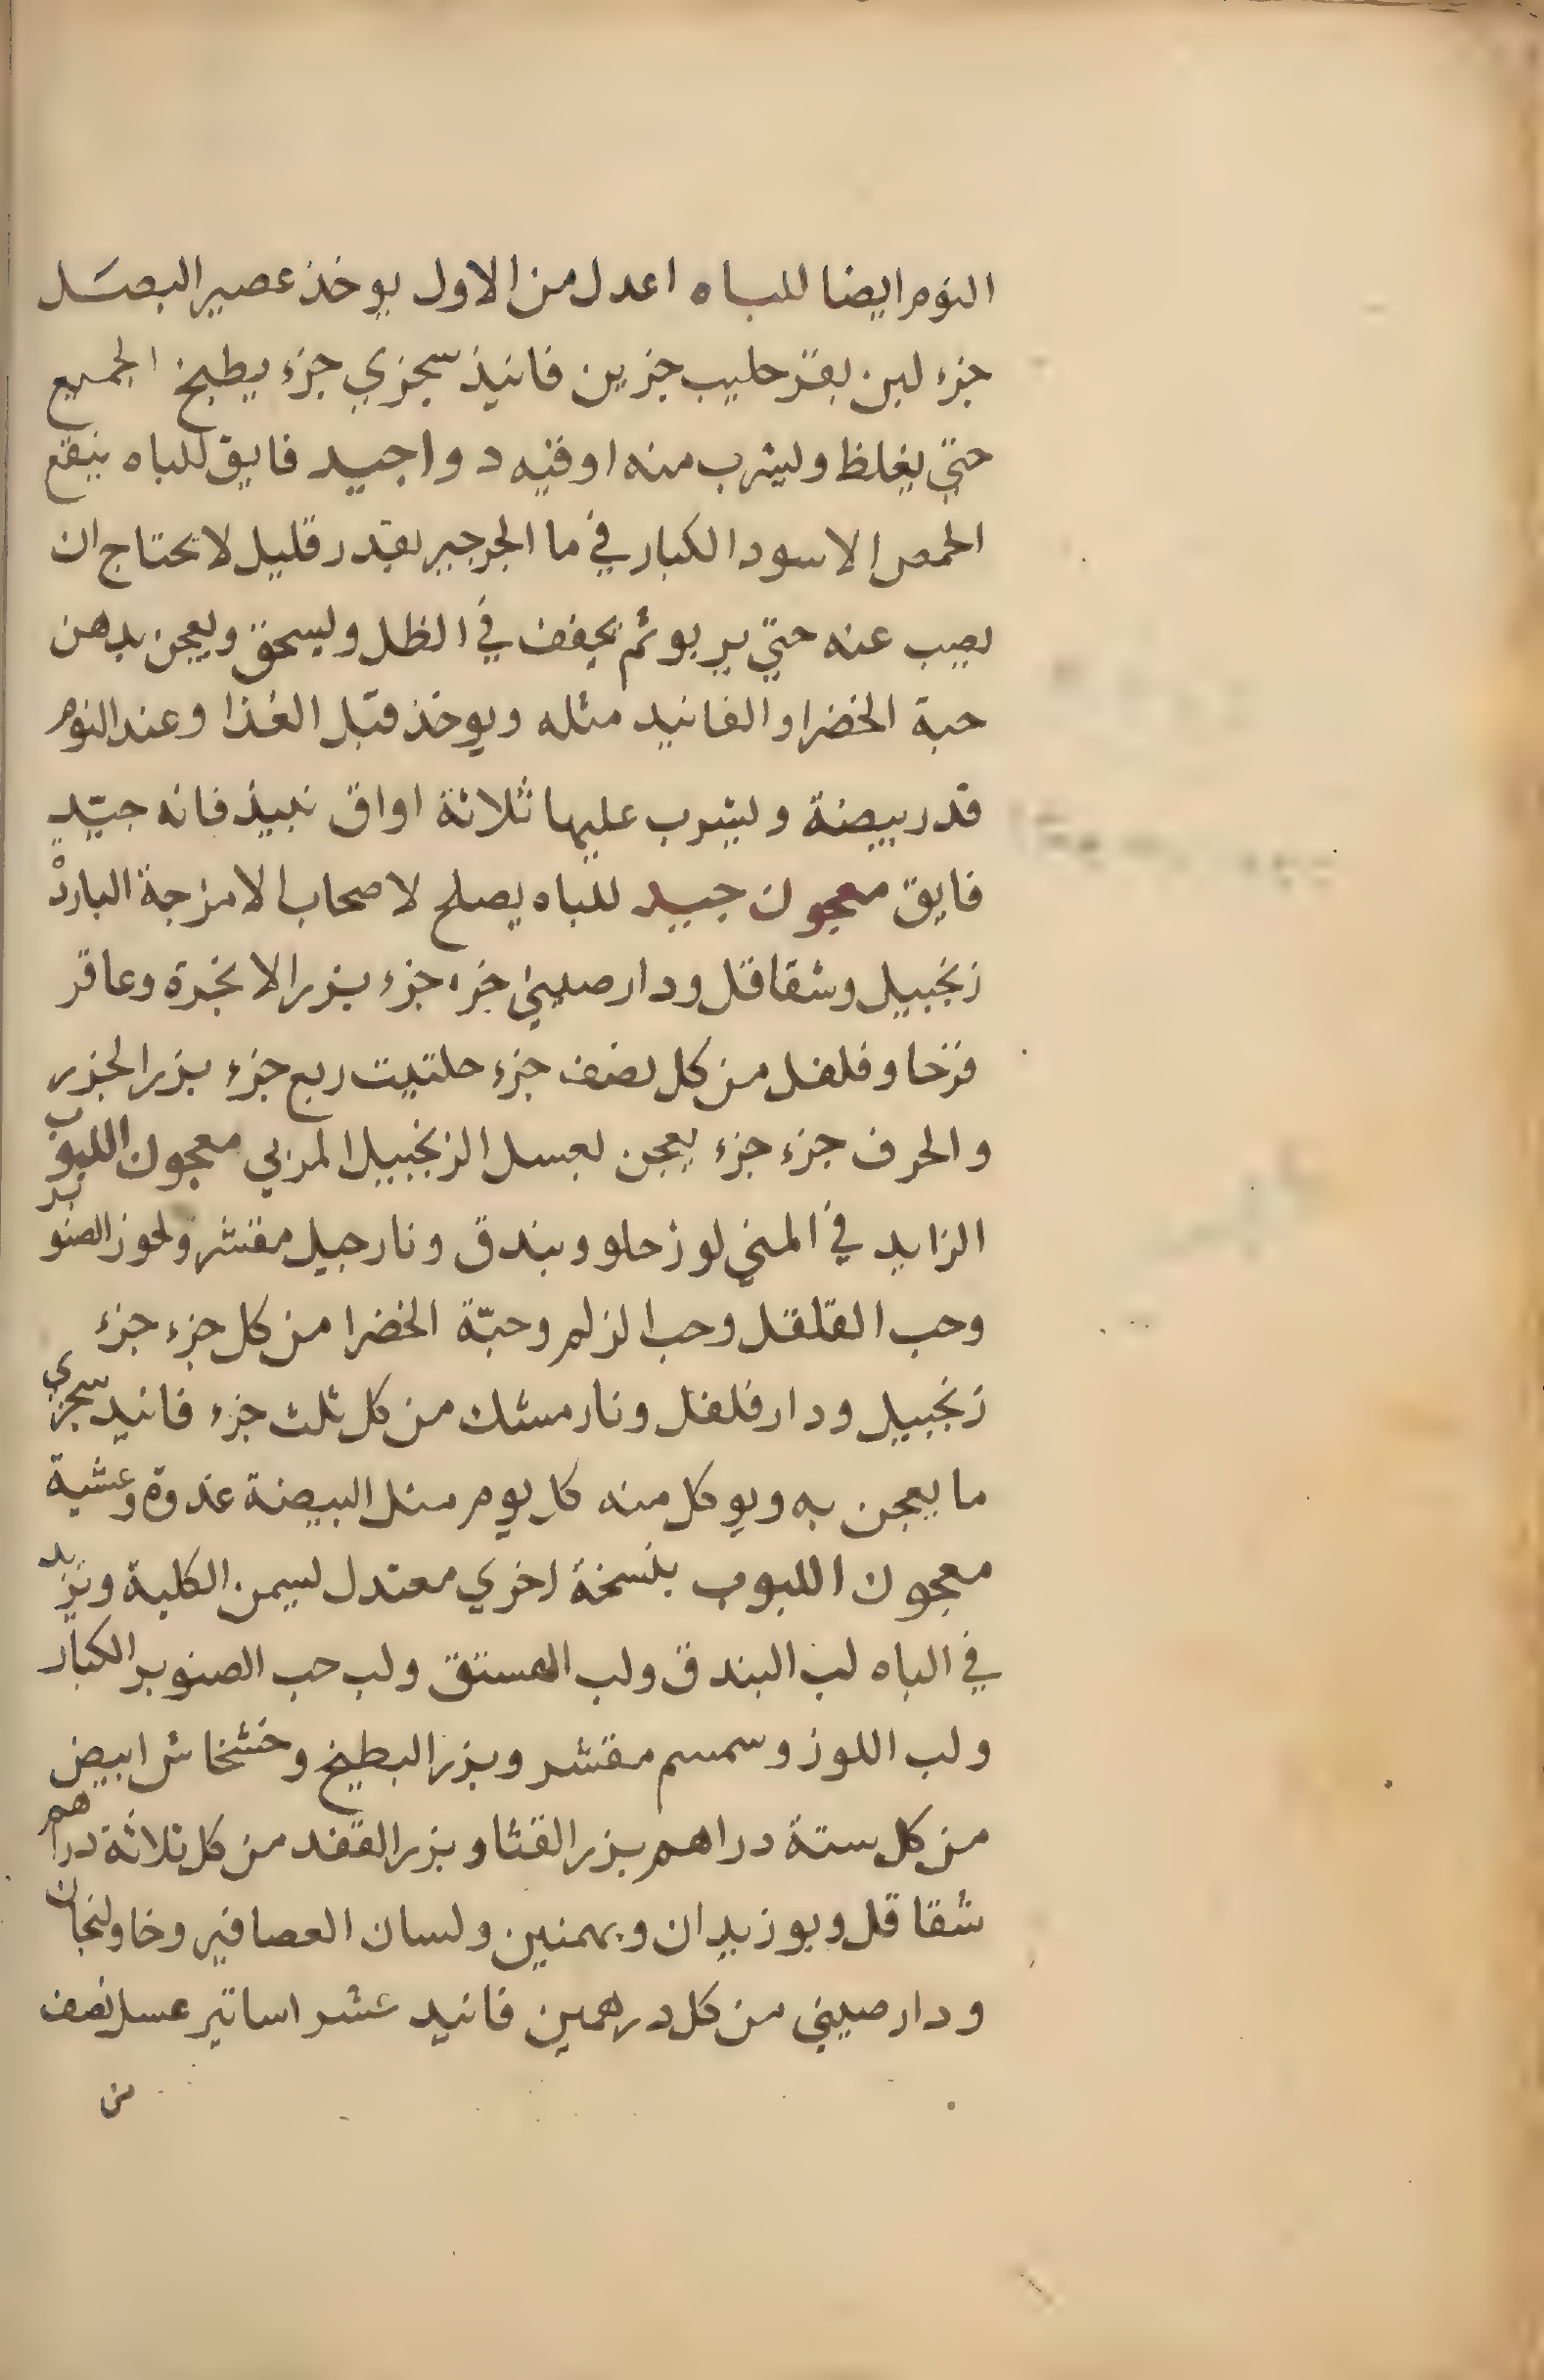 النوم ايضا للباه اعدل من الاول يوخذ عصير البصل
جزء لبن بقر حليب جزين فانيذ سجزي جزء يطبخ الجميع
حتي يغلظ وليشرب منه اوقيه دوا جيد فايق للباه ينقع
الحمص الاسود الكبار في ما الجرجير بقدر قليل لا يحتاج ان
يصب عنه حتي يربو ثم يجفف في الظل ويسحق ويعجن بدهن
حبة الخضرا والفانيد مثله ويوخذ قبل الغذا وعند النوم
قدر بيضة ويشرب عليها ثلاثة اواق نبيذ فانه جيّد
فايق معجون جيد للباه يصلح لاصحاب الامزجة البارد
زنجبيل وشقاقل ودار صيني جزء جزء بزر الانجرة وعاقر
قرحا وفلفل من كل نصف جزء حلتيت ربع جزء بزر الجزر
والحرف جزء جزء يعجن بعسل الزنجبيل المربي معجون اللبوب
الزايد في المني لوز حلو وبندق ونارجيل مقشر ولحوز الصنوبر
وحب القلقل وحب الزلم وحبّة الخضرا من كل جزء جزء
زنجبيل ودار فلفل ونارمشك من كل ثلث جزء فانيد سجزي
ما يعجن به ويوكل منه كل يوم مثل البيضة غدوة وعشية
معجون اللبوب بنسخة اخري معتدل يسمن الكلية ويزيد
في الباه لب البندق ولب الفستق ولب حب الصنوبر الكبار
ولب اللوز وسمسم مقشر وبزر البطيخ وخشخاش ابيض
من كل ستة دراهم بزر القثا وبزر القفد من كل ثلاثة دراهم
شقاقل وبوزيدان وبهمنين ولسان العصافير وخاولنجان
ودار صيني من كل درهمين فانيد عشر اساتير عسل نصف
من